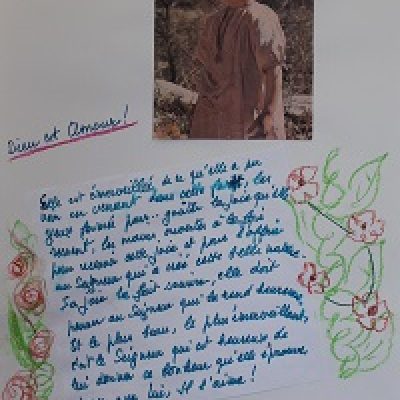 Dieu est Amour !
Elle est émerveillée de ce qu'elle a pu
voir en venant dans cette, les
yeux fermés pour goûter la joie qu'elle
ressent, les mains ouvertes à la fois
pour recevoir cette joie et pour l'offrir
au Seigneur qui a créé cette belle nature.
Sa joie la fait sourire, elle doit
penser au Seigneur qui la rend heureuse,
Et le plus beau, le plus émerveillant,
c'est le Seigneur qui est heureux de
lui donner ce bonheur qu'elle éprouve
lui, Il l'aime !